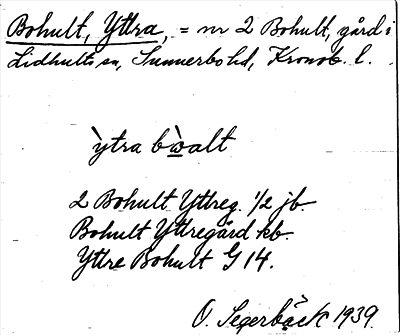 Bohult, Yttra, = nr 2 Bohult, gård i
Lidhults sn, Sunnerbo hd, Kronob. l.
`ytra bẁalt
2 Bohult Yttreg. 1/2 jb.
Bohult Yttregård kb.
Yttre Bohult G 14.
O. Segerbäck 1939.